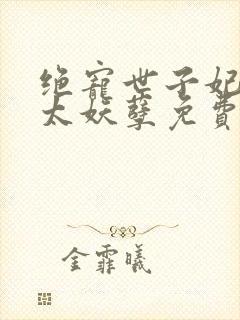 绝宠世子妃
太妖孽免费
金霏曦